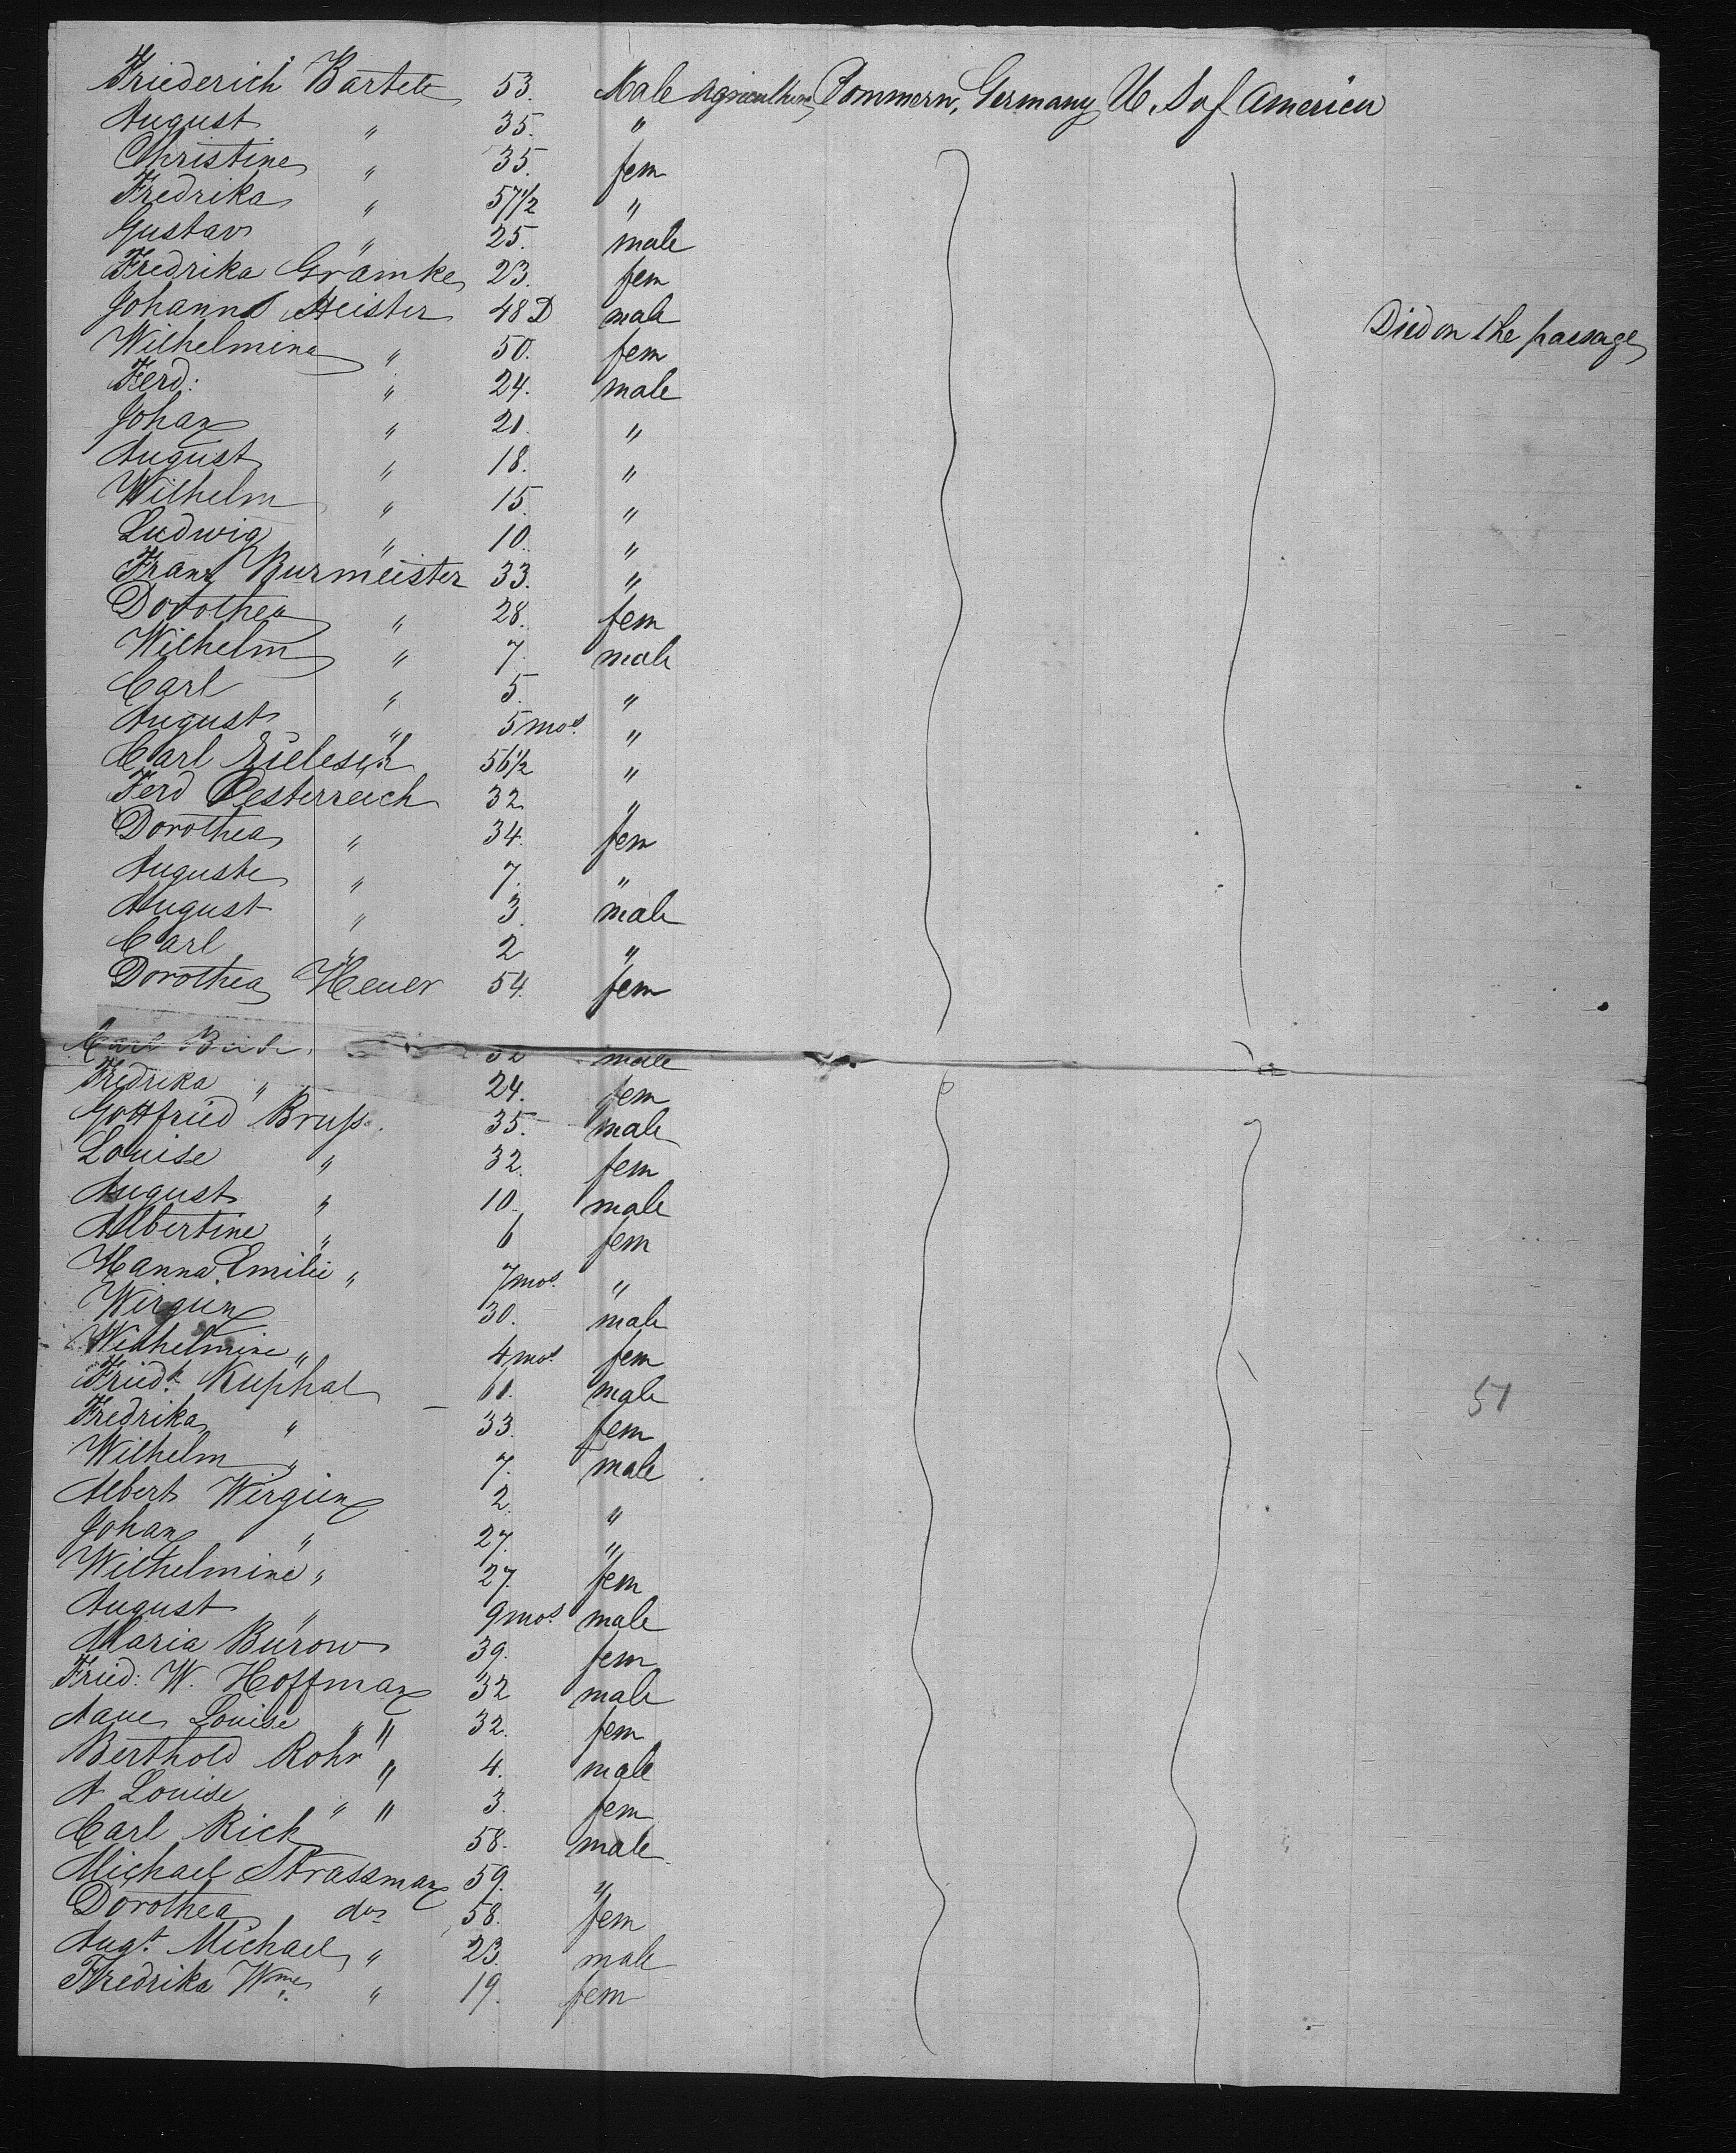 Friederich Bartelt 53. Male Agriculture, Pommern, Germany U. S of America
August " 35. "
Christine " 35. fem
Fredrika " 57 1/2 "
Gustav " 25. male
Fredrika Gramke 23. fem
Johann Heister 48 D male Died on the passage
Wilhelmina " 50. fem
Ferd: " 24. male
Johan " 21. "
August " 18. "
Wilhelm " 15. "
Ludwig " 10. "
Franz Burmeister 33. "
Dorothea " 28. fem
Wilhelm " 7. male
Carl " 5. "
August " 5 mos. "
Carl 56 1/2 "
Ferd Oesterreich 32 "
Dorothea " 34. fem
Auguste " 7. "
August " 3. male
Carl " 2 "
Dorothea Heuer 54. fem
Carl 32 male
Fredrika " 24. fem
Gottfried Bruss. 35. male
Louise " 32. fem
August " 10. male
Albertine " 6 fem
Hanna Emilie " 7 mos. "
Wirgun 30. male
Wilhelmine " 4 mos. fem
Fried.k Kuphal 61. male 51
Fredrika " 33. fem
Wilhelm " 7. male
Albert Wirgun 2. "
Johan " 27. "
Wilhelmine " 27. fem
August " 9 mos male
Maria Burow 39. fem
Fried: W. Hoffman 32 male
Louise " " 32. fem
Berthold Rohr " " 4. male
A Louise " " 3. fem
Carl Rich 58. male
Michael Strassman 59. "
Dorothea do 58. fem
Aug.t Michael " 23. male
Fredrika Wme. " 19. fem